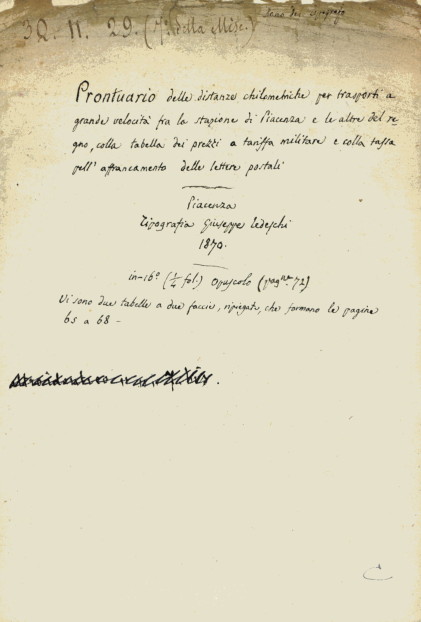 32. 11. 29. (7ª della Misc.)
Prontuario delle distanze chilometriche per trasporti a
grande velocità fra la stazione di Piacenza e le altre del re-
gno, colla tabella dei prezzi a tariffa militare e colla tassa
pell' affrancamento delle lettere postali
Piacenza
Tipografia Giuseppe Tedeschi
1870.
in-16º (1/4 fol.) opuscolo (pagⁿᵉ 72)
Vi sono due tabelle a due faccie, ripiegate, che formano le pagine
65 a 68 -
C